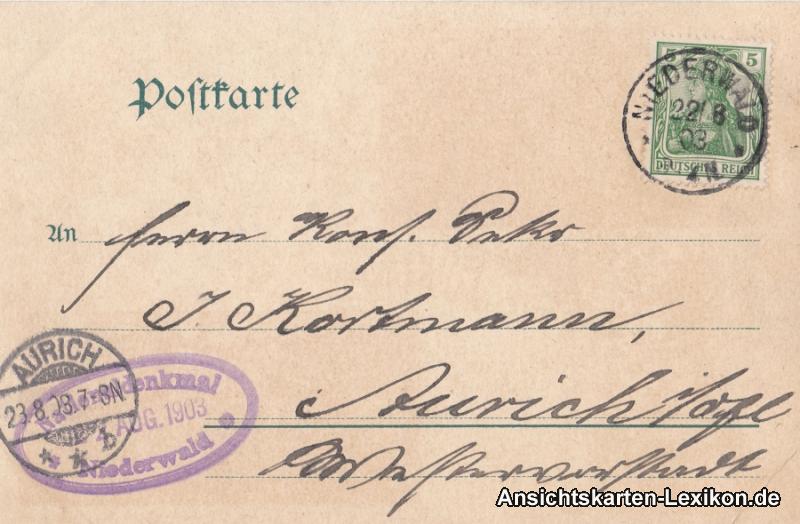 Postkarte
5 5
DEUTSCHES REICH
NIEDERWALD
22/8
03
N
An Herrn Kons. Sekr
J Kortmann,
Aurich
Westervorstadt
AURICH
23.8.03.7-8N
* * b
Nationaldenkmal
AUG. 1903
Niederwald
Ansichtskarten-Lexikon.de